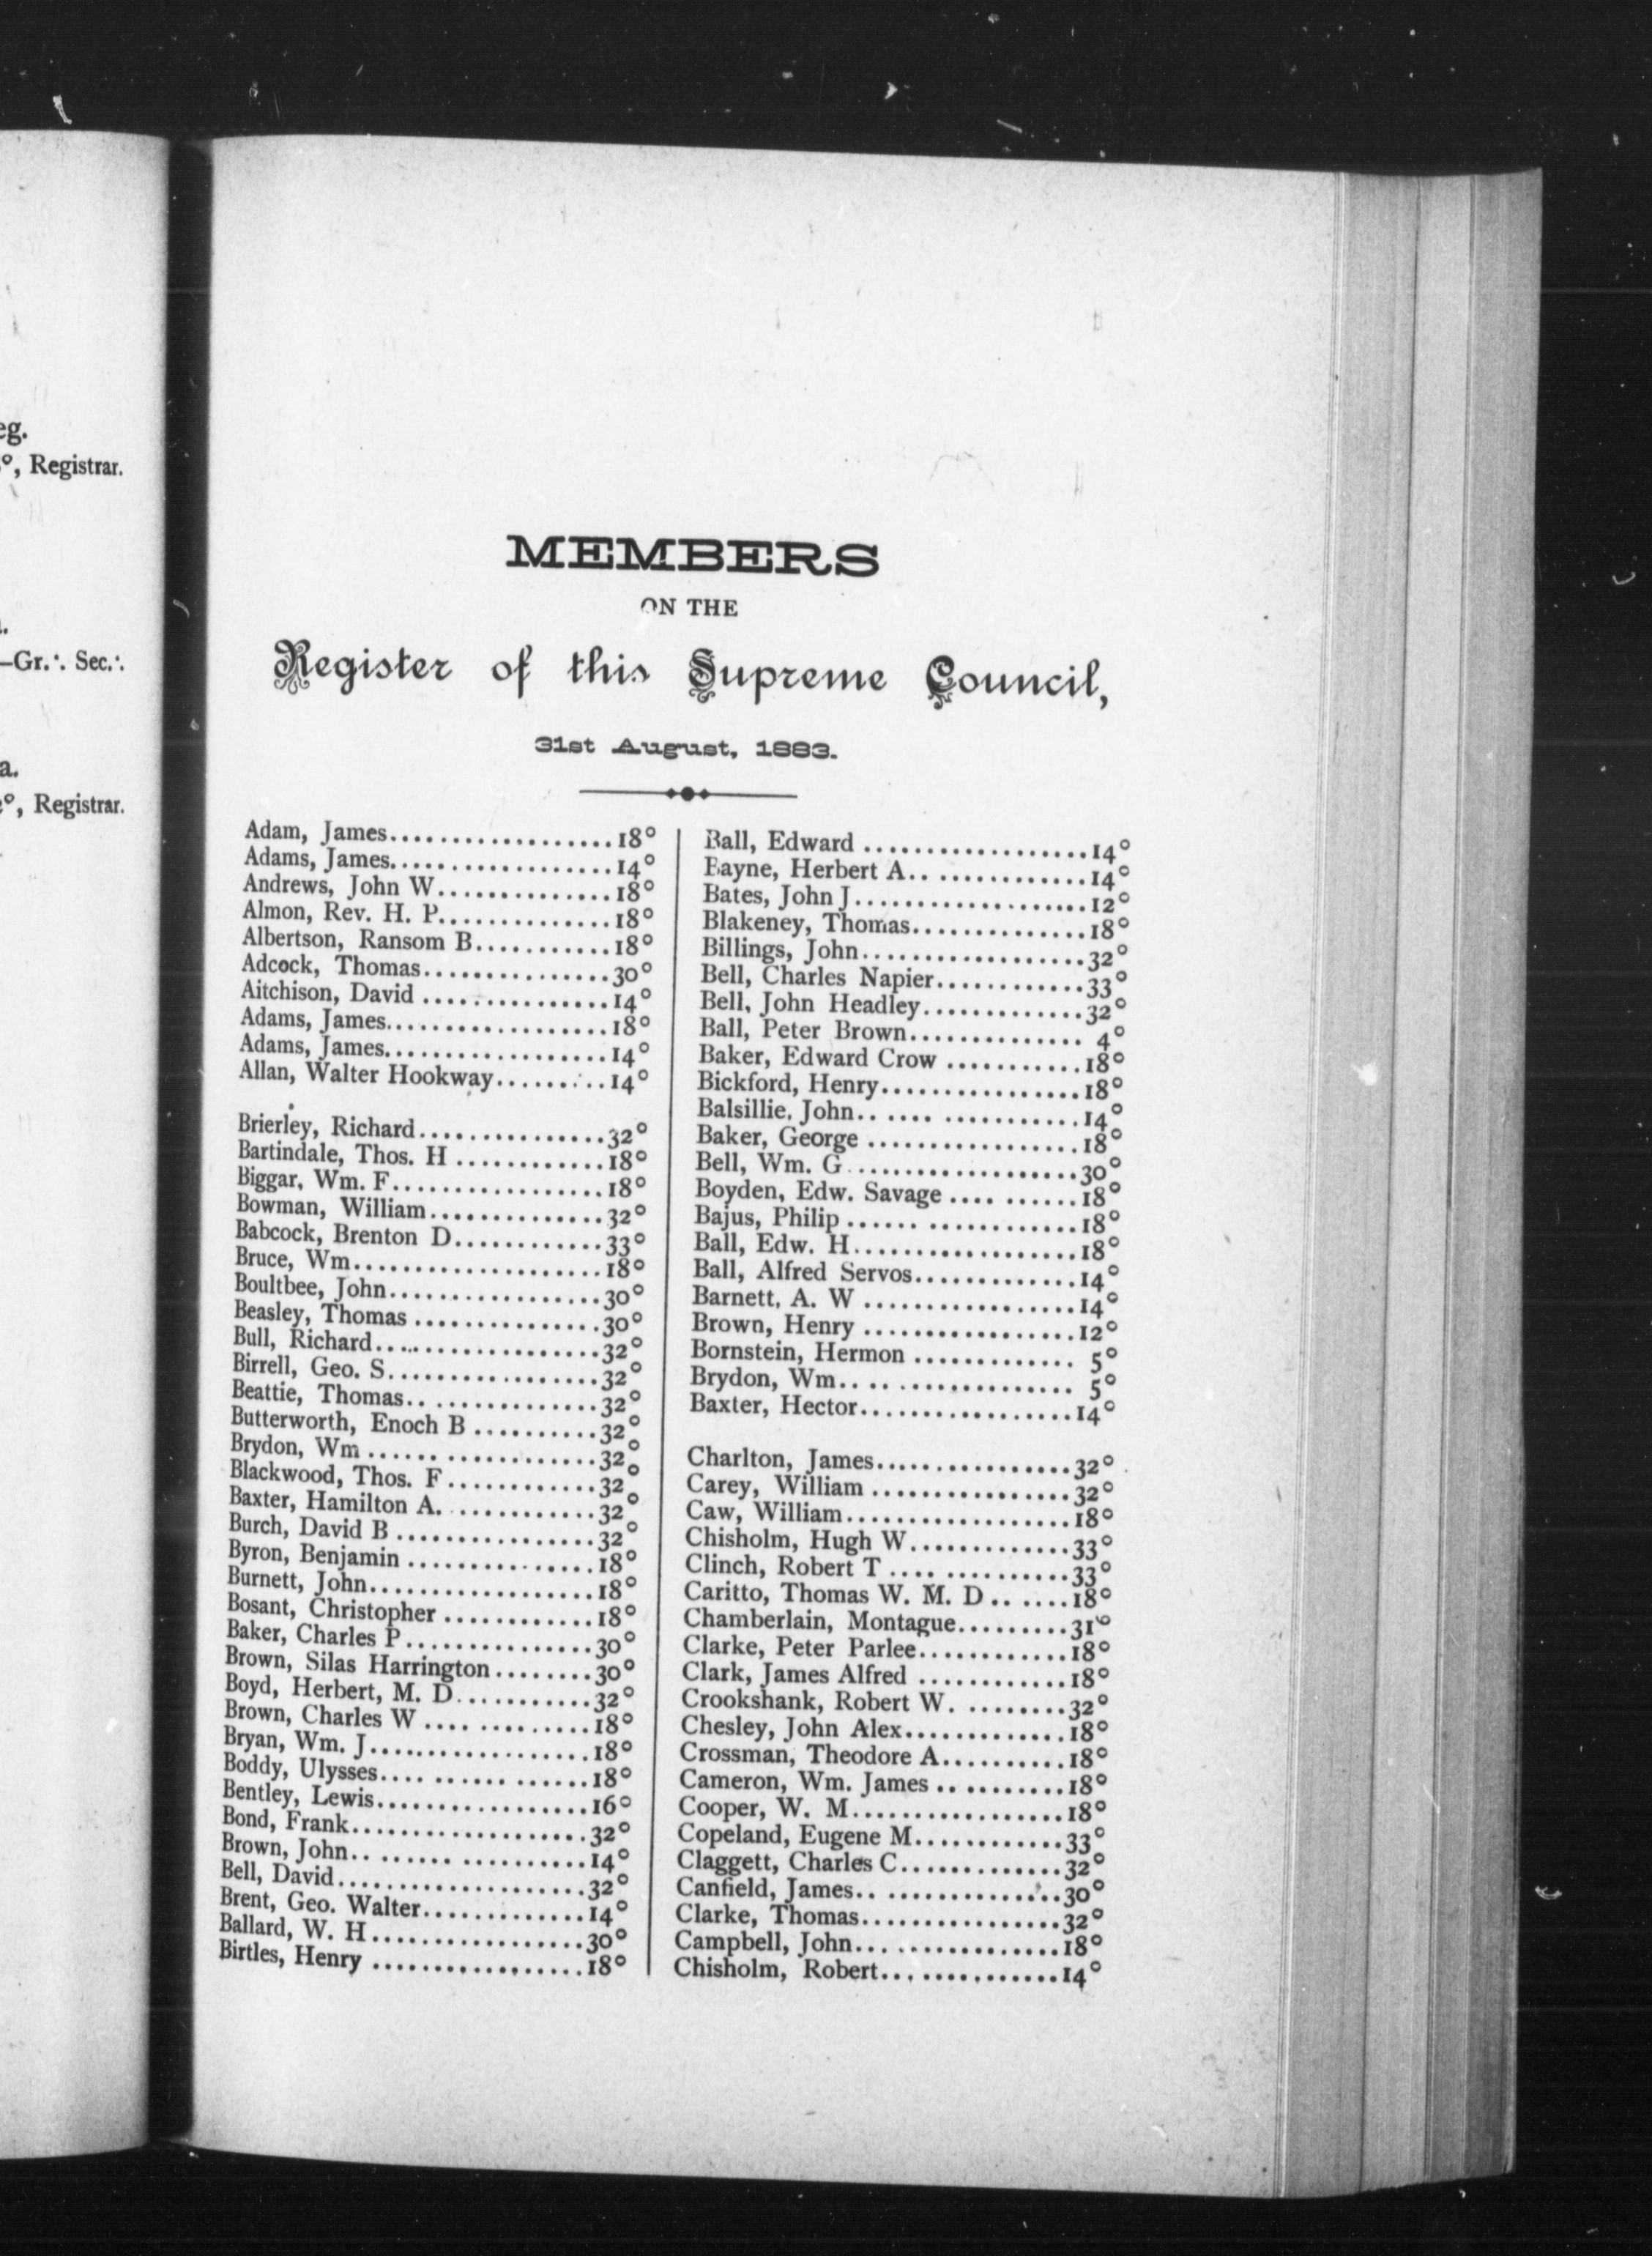 eg.
°, Registrar.
—Gr.∴ Sec.∴
a.
°, Registrar.
MEMBERS
ON THE
Register of this Supreme Council,
31st August, 1883.
Adam, James...................18°
Adams, James...................14°
Andrews, John W...............18°
Almon, Rev. H. P...............18°
Albertson, Ransom B............18°
Adcock, Thomas.................30°
Aitchison, David ................14°
Adams, James...................18°
Adams, James...................14°
Allan, Walter Hookway..........14°
Brierley, Richard................32°
Bartindale, Thos. H .............18°
Biggar, Wm. F...................18°
Bowman, William...............32°
Babcock, Brenton D.............33°
Bruce, Wm......................18°
Boultbee, John..................30°
Beasley, Thomas ................30°
Bull, Richard....................32°
Birrell, Geo. S...................32°
Beattie, Thomas.................32°
Butterworth, Enoch B ...........32°
Brydon, Wm ....................32°
Blackwood, Thos. F .............32°
Baxter, Hamilton A..............32°
Burch, David B .................32°
Byron, Benjamin ................18°
Burnett, John...................18°
Bosant, Christopher .............18°
Baker, Charles P ................30°
Brown, Silas Harrington.........30°
Boyd, Herbert, M. D............32°
Brown, Charles W ..............18°
Bryan, Wm. J...................18°
Boddy, Ulysses..................18°
Bentley, Lewis..................16°
Bond, Frank....................32°
Brown, John....................14°
Bell, David.....................32°
Brent, Geo. Walter..............14°
Ballard, W. H ..................30°
Birtles, Henry ..................18°
Ball, Edward ...................14°
Bayne, Herbert A................14°
Bates, John J....................12°
Blakeney, Thomas...............18°
Billings, John...................32°
Bell, Charles Napier.............33°
Bell, John Headley..............32°
Ball, Peter Brown............... 4°
Baker, Edward Crow ............18°
Bickford, Henry.................18°
Balsillie, John...................14°
Baker, George ..................18°
Bell, Wm. G....................30°
Boyden, Edw. Savage ...........18°
Bajus, Philip ....................18°
Ball, Edw. H....................18°
Ball, Alfred Servos..............14°
Barnett, A. W ..................14°
Brown, Henry ..................12°
Bornstein, Hermon .............. 5°
Brydon, Wm.................... 5°
Baxter, Hector..................14°
Charlton, James.................32°
Carey, William .................32°
Caw, William...................18°
Chisholm, Hugh W..............33°
Clinch, Robert T ................33°
Caritto, Thomas W. M. D .......18°
Chamberlain, Montague..........31°
Clarke, Peter Parlee.............18°
Clark, James Alfred .............18°
Crookshank, Robert W..........32°
Chesley, John Alex..............18°
Crossman, Theodore A...........18°
Cameron, Wm. James ...........18°
Cooper, W. M...................18°
Copeland, Eugene M.............33°
Claggett, Charles C..............32°
Canfield, James.................30°
Clarke, Thomas.................32°
Campbell, John..................18°
Chisholm, Robert................14°